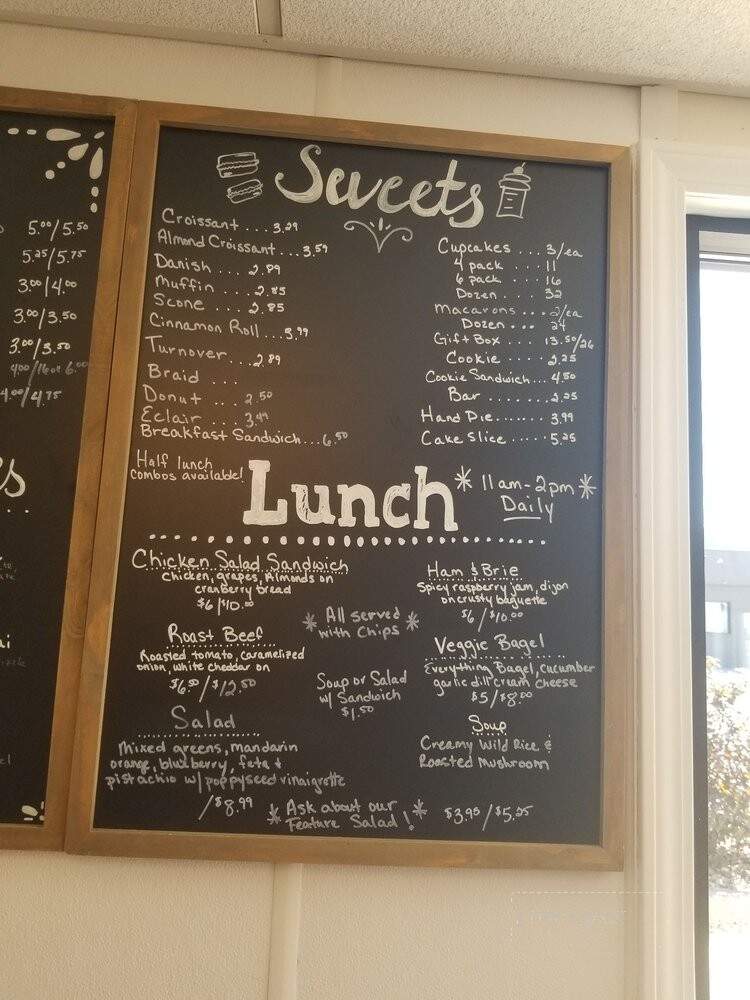 5.00/5.50
5.25/5.75
3.00/4.00
3.00/3.50
3.00/3.50
4.00/4.75
Sweets
Croissant .... 3.29
Almond Croissant .... 3.59
Danish .... 2.89
Muffin .... 2.85
Scone .... 2.85
Cinnamon Roll .... 3.99
Turnover ... 2.89
Braid ...
Donut .. 2.50
Eclair .... 3.49
Breakfast Sandwich... 6.50
Cupcakes .... 3/ea
4 pack .... 11
6 pack .... 16
Dozen .... 32
Macarons .... 2/ea
Dozen ... 24
Gift Box .... 13.50/26
Cookie ..... 2.25
Cookie Sandwich... 4.50
Bar ....... 2.25
Hand Pie...... 3.99
Cake Slice ..... 5.25
Half lunch
combos available!
Lunch
* 11am-2pm *
Daily
Chicken Salad Sandwich
chicken, grapes, Almonds on
cranberry bread
$6/$10.00
Ham & Brie
Spicy raspberry jam, dijon
on crusty baguette
$6/$10.00
* All served *
with chips
Roast Beef
Roasted tomato, caramelized
onion, white cheddar on
$6.50/$12.50
Veggie Bagel
Everything Bagel, cucumber
garlic dill cream cheese
$5/$8.00
Soup or Salad
w/ Sandwich
$1.50
Salad
Mixed greens, mandarin
orange, blueberry, feta &
pistachio w/ poppyseed vinaigrette
/$8.99
Soup
Creamy Wild Rice &
Roasted Mushroom
$3.95/$5.25
* Ask about our *
Feature Salad!